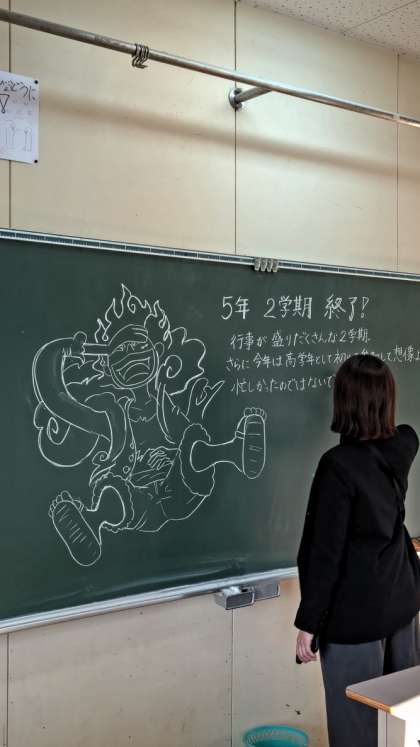 などうに
5年 2学期 終了!
行事が盛りだくさんな2学期.
さらに今年は高学年として初め して想像
忙しかったのではないで